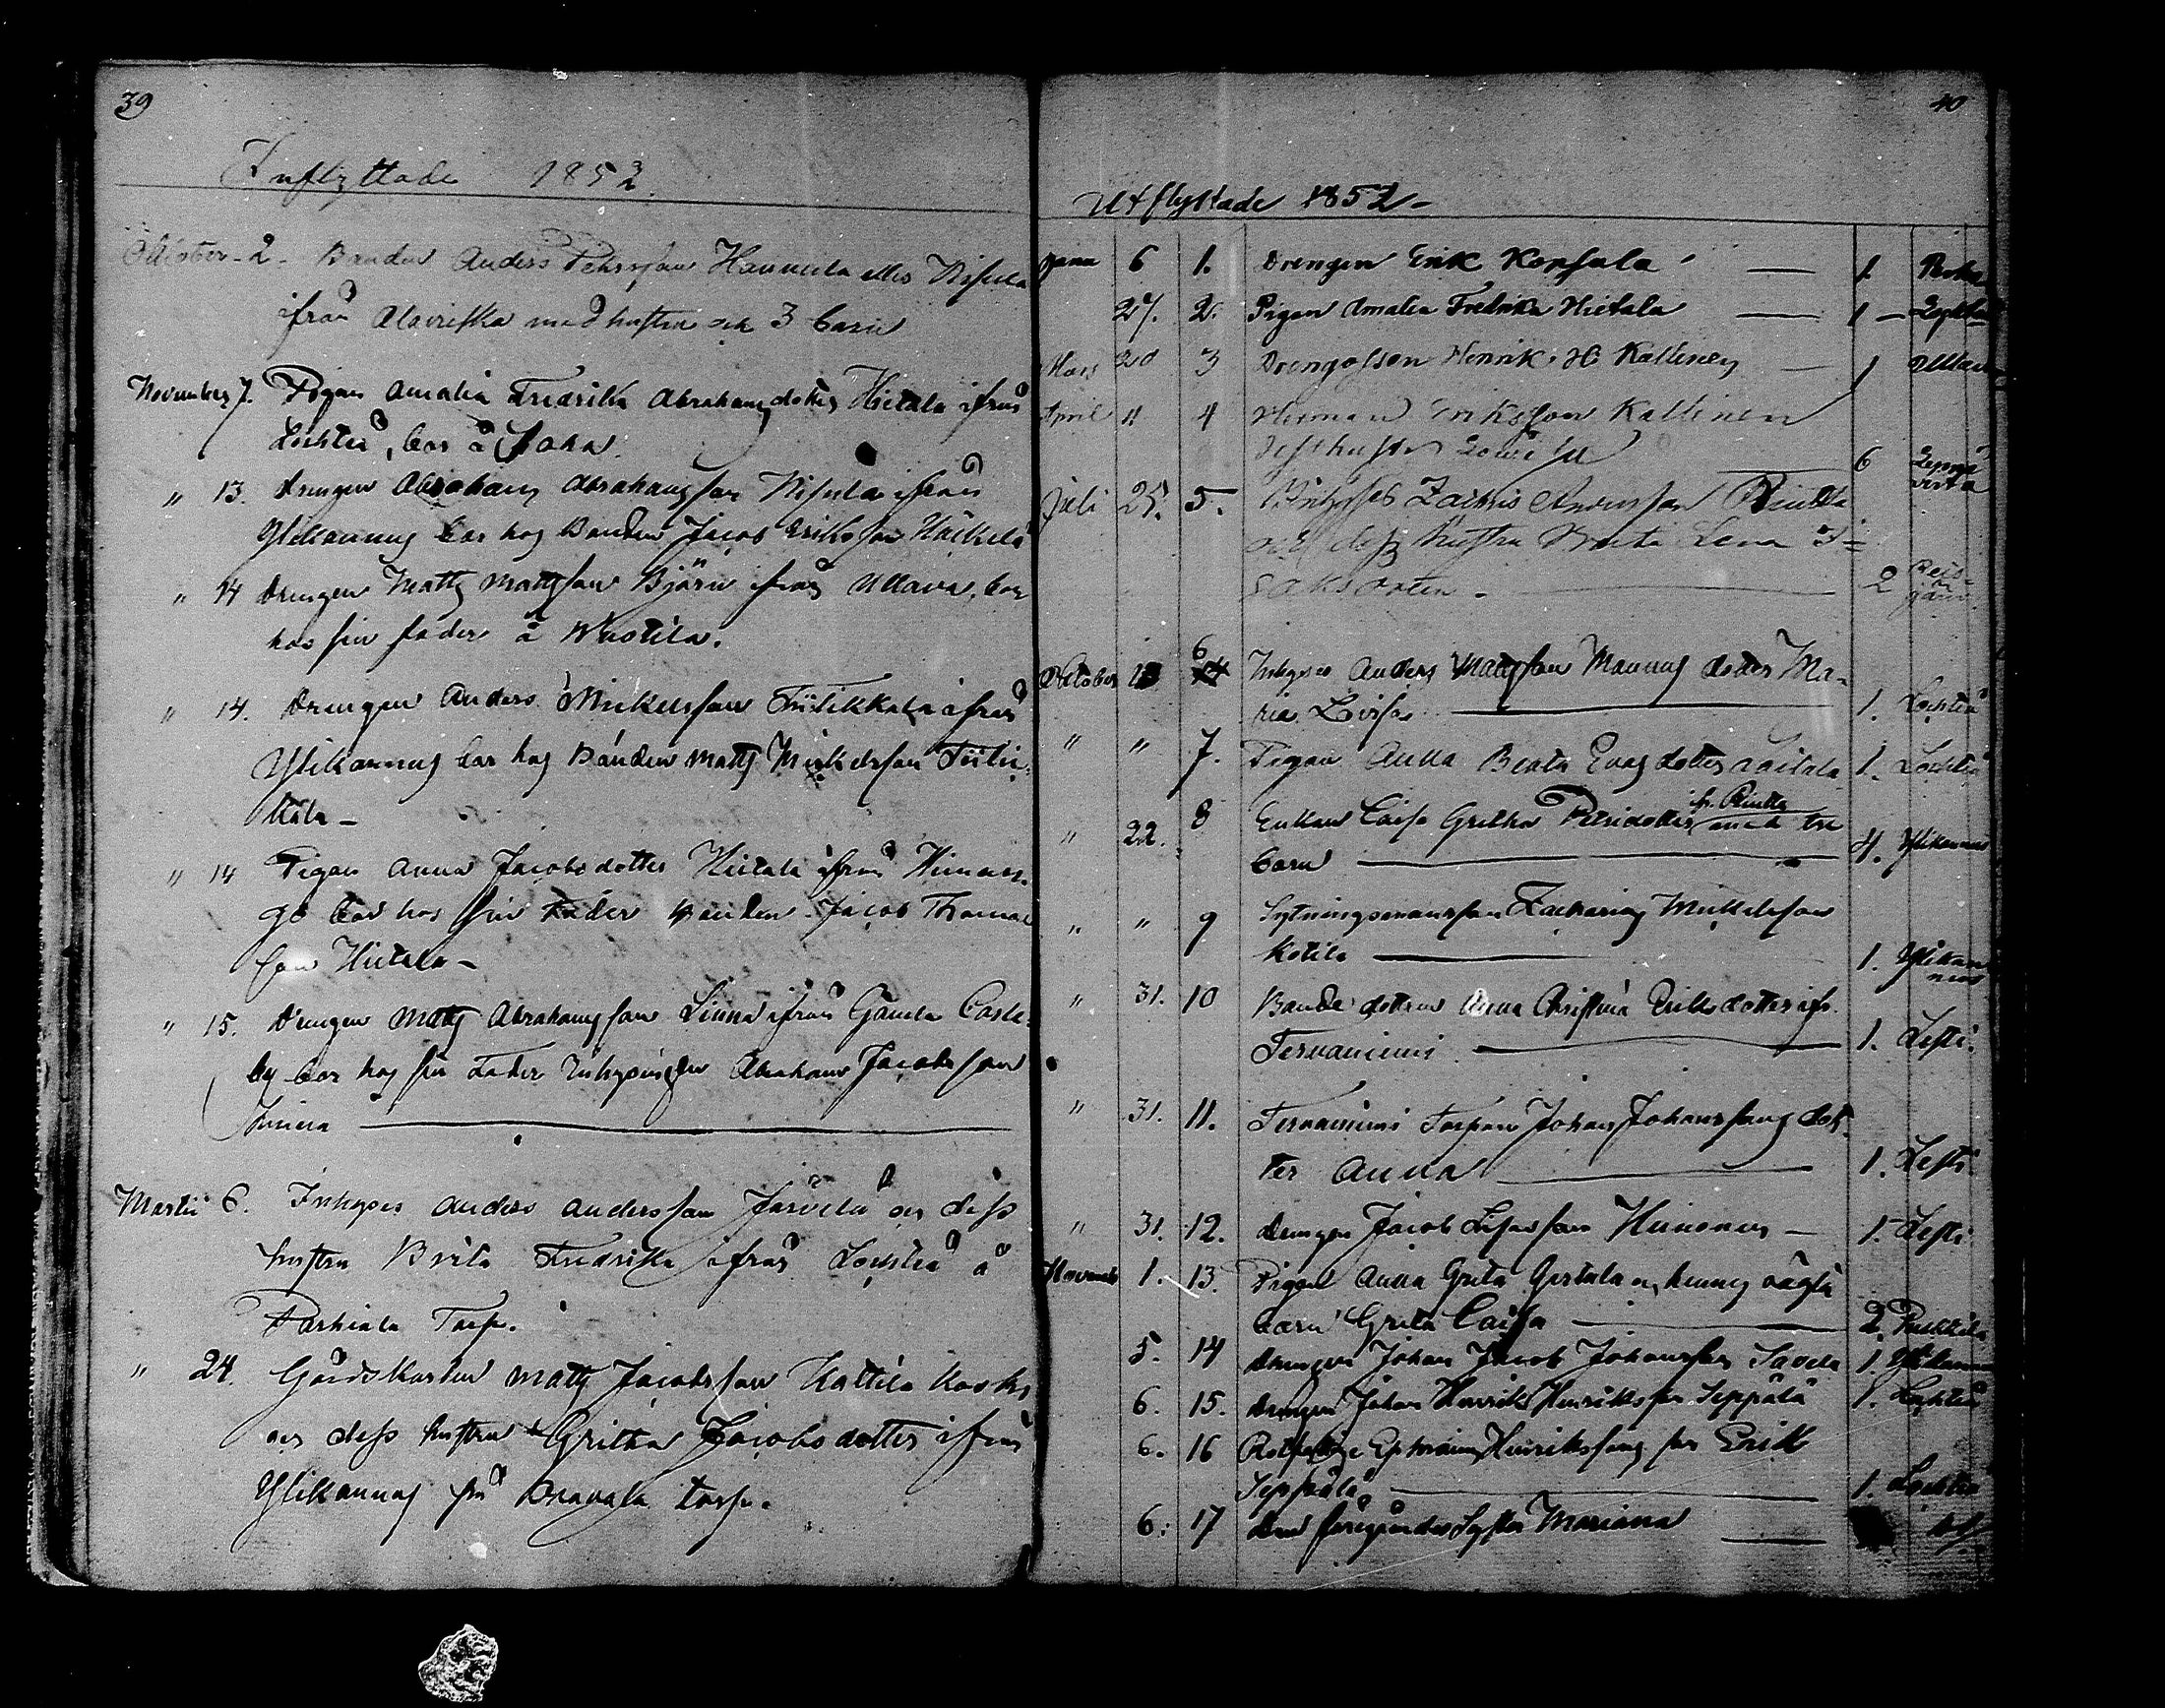 39
Inflyttade 1852.
October 2. Bonden Anders Pehrsson Hannula eller Nisula
ifrån Alaveiska med hustru och 3 barn
November 7. Pigan Amalia Fredrika Abrahamsdotter Hietala ifrån
Lochteå, bor å
" 13. Drengen Abraham Abrahamsson Nisula ifrån
Ylikannus bor hos Bonden Jacob Eriksson
" 14 Drengen Matts Mattsson Björn ifrån Ullava, bor
hos sin fader å Wuotila.
" 14. Drengen Anders Mickelsson ifrån
Ylikannus bor hos Bonden Matts Mickelsson
" 14 Pigan Anna Jacobsdotter Hietala ifrån Himan-
go bor hos sin fader Bonden Jacob Thomas
son Hietala –
" 15. Drengen Matts Abrahamsson Linna ifrån Gamla Carle-
by bor hos sin fader Inhysingen Abraham Jacobsson
Linna
Martii 6. Inhyses Anders Andersson Järvelä och dess
hustru Brita Fredrika ifrån Lochteå å
Parhiala Torp.
" 24. Gårdskarlen Matts Jacobsson Kattila
och dess hustru Gretha Jacobsdotter ifrån
Ylikannus på torp.
40
Utflyttade 1852 –
Janu 6 1. Drengen Erik Korpula 1
27. 2. Pigan Amalia Fredrika Hietala 1 –
Mars 20 3 Drengosson Henrik H: Kallinen 1 Ullava
April 11 4 Herman Eriksson Kallinen
Dess hustru Lovisa 6
Juli 25. 5. Inhyses Zachris Andersson Rintta
och dess Hustru Brita Lena I=
saksdoter – 2
October 6 Inhyses Anders Mattsson Mannus doter Ma-
ria Lovisa 1. Lochteå
" " 7. Pigan Anna Beata Enasdotter 1. Lochteå
" 22. 8 Enkan Caisa Gretha Petridotter fr. Rintta med tre
barn 4. Ylikannus
" " 9 Sytningsmansson Zacharias Mickelsson
Kotila 1. Ylikan
nus
" 31. 10 Bonde dottren Anna Christina Eriksdotter ifr.
Tervaniemi 1. Lesti.
" 31. 11. Tervaniemi Torpare Johan Johanssons dot-
ter Anna 1. Lesti
" 31. 12. Drengen Jacob Heinonen – 1. Lesti
Novemb 1. 13. Pigan Anna Greta och hennes oägta
barn Greta Caisa 2.
5. 14 Drengen Johan Jacob Johansson Savela 1. Ylikannus
6. 15. Drengen Johan Henrik Henriksson Seppälä 1. Lochteå
6. 16 Ephraim Henrikssons son Erik
Seppälä 1. Lochteå
6. 17 Den föregåendes Syster Mariana